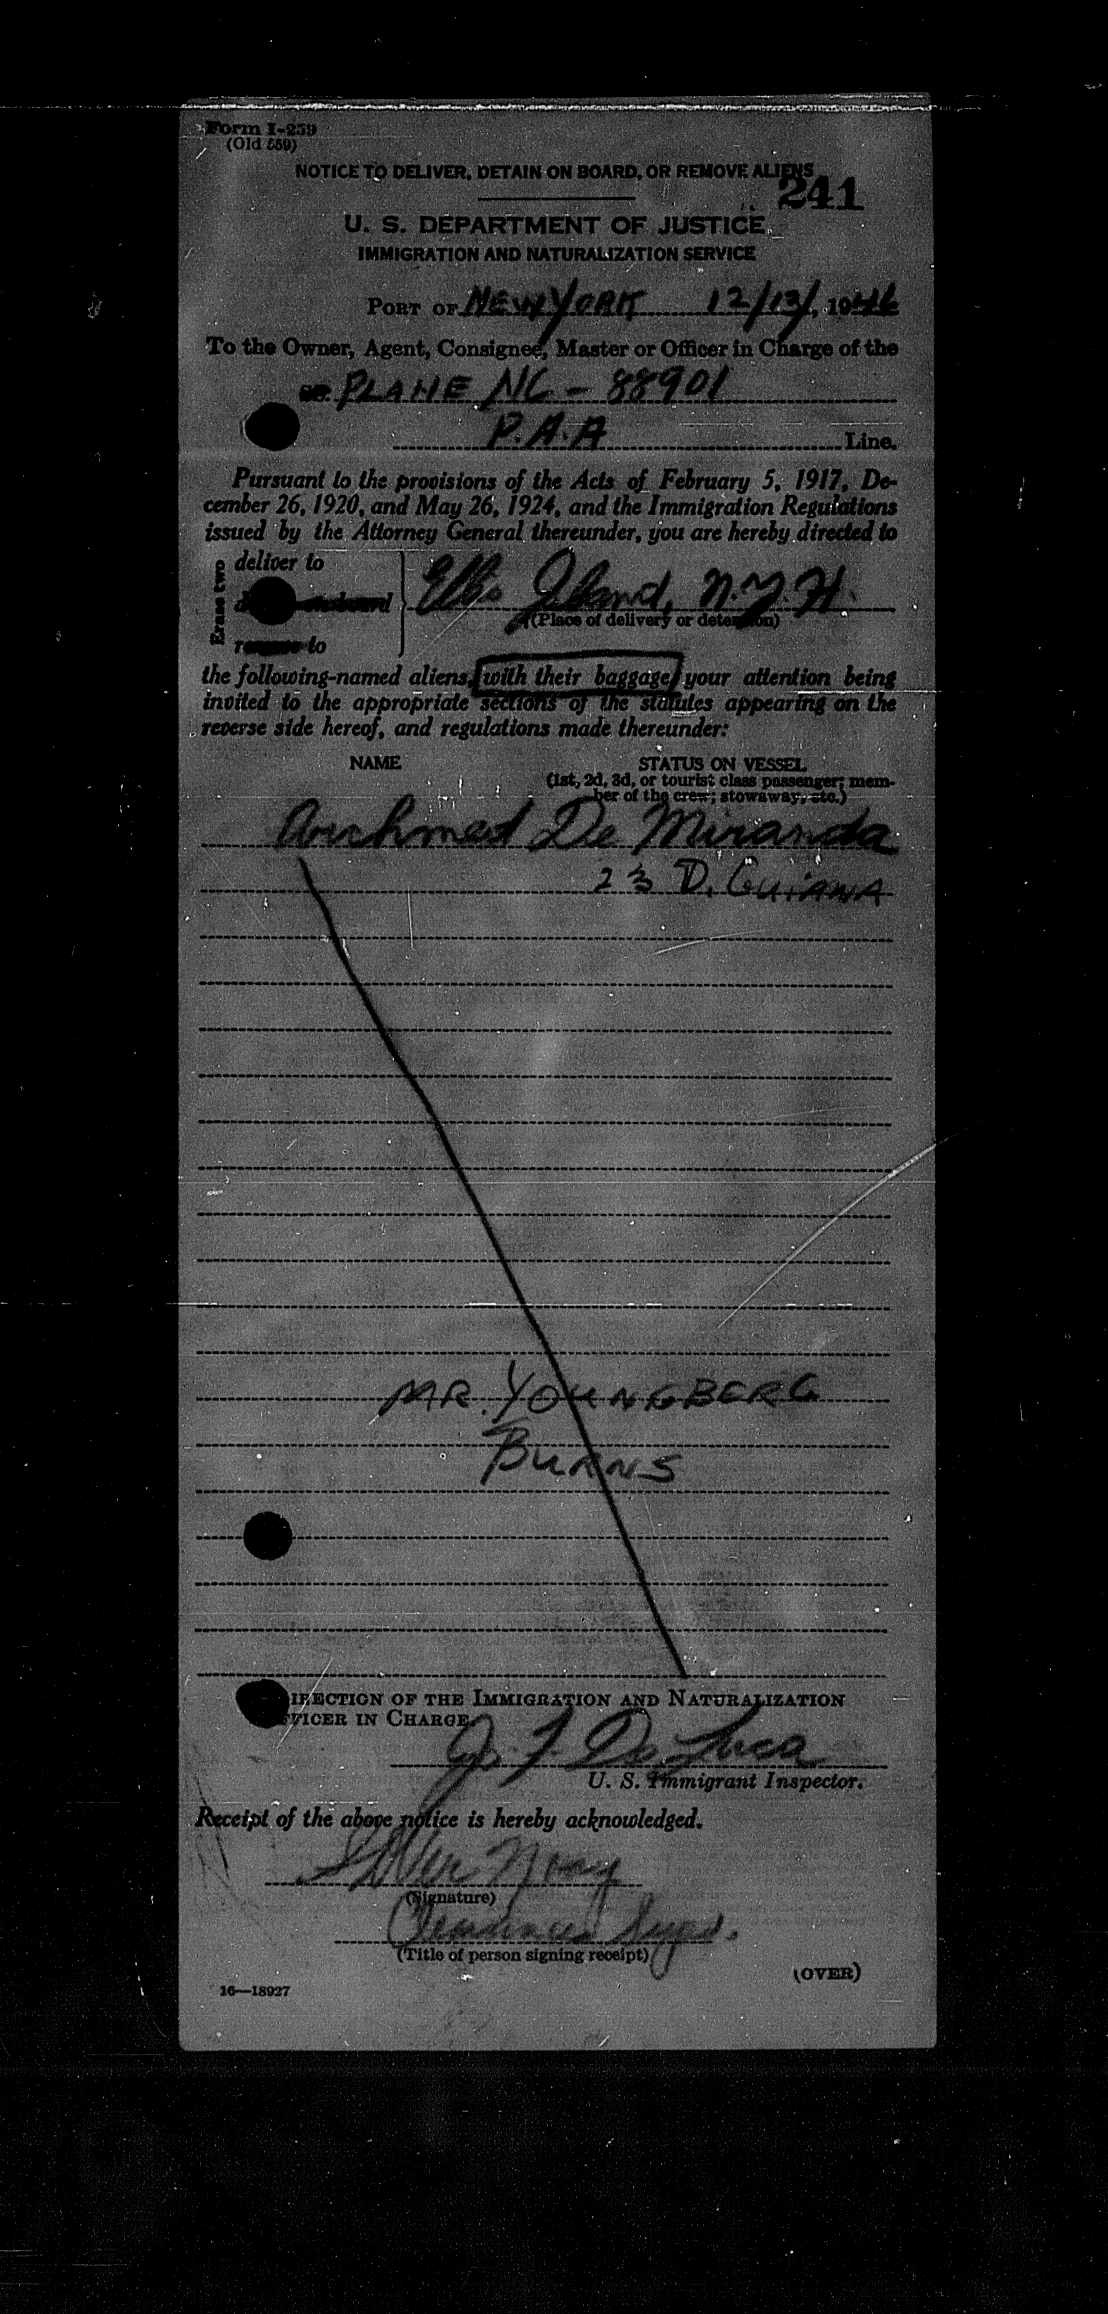 Form I-259
(Old 559)
NOTICE TO DELIVER, DETAIN ON BOARD, OR REMOVE ALIENS
241
U. S. DEPARTMENT OF JUSTICE
IMMIGRATION AND NATURALIZATION SERVICE
PORT OF NEW YORK 12/13/, 1946
To the Owner, Agent, Consignee, Master or Officer in Charge of the
PLANE NC - 88901
P.A.A Line.
Pursuant to the provisions of the Acts of February 5, 1917, De-
cember 26, 1920, and May 26, 1924, and the Immigration Regulations
issued by the Attorney General thereunder, you are hereby directed to
Erase two
deliver to
Ellis Island, N.Y.H.
(Place of delivery or detention)
to
the following-named aliens, with their baggage, your attention being
invited to the appropriate sections of the statutes appearing on the
reverse side hereof, and regulations made thereunder:
NAME STATUS ON VESSEL
(1st, 2d, 3d, or tourist class passenger; mem-
ber of the crew; stowaway, etc.)
Archmed De Miranda
23 D. GUIANA
MR. YOUNGBERG
BURNS
DIRECTION OF THE IMMIGRATION AND NATURALIZATION
OFFICER IN CHARGE.
J. F. De Luca
U. S. Immigrant Inspector.
Receipt of the above notice is hereby acknowledged.
(Signature)
Clearance Supv.
(Title of person signing receipt)
(OVER)
16—18927